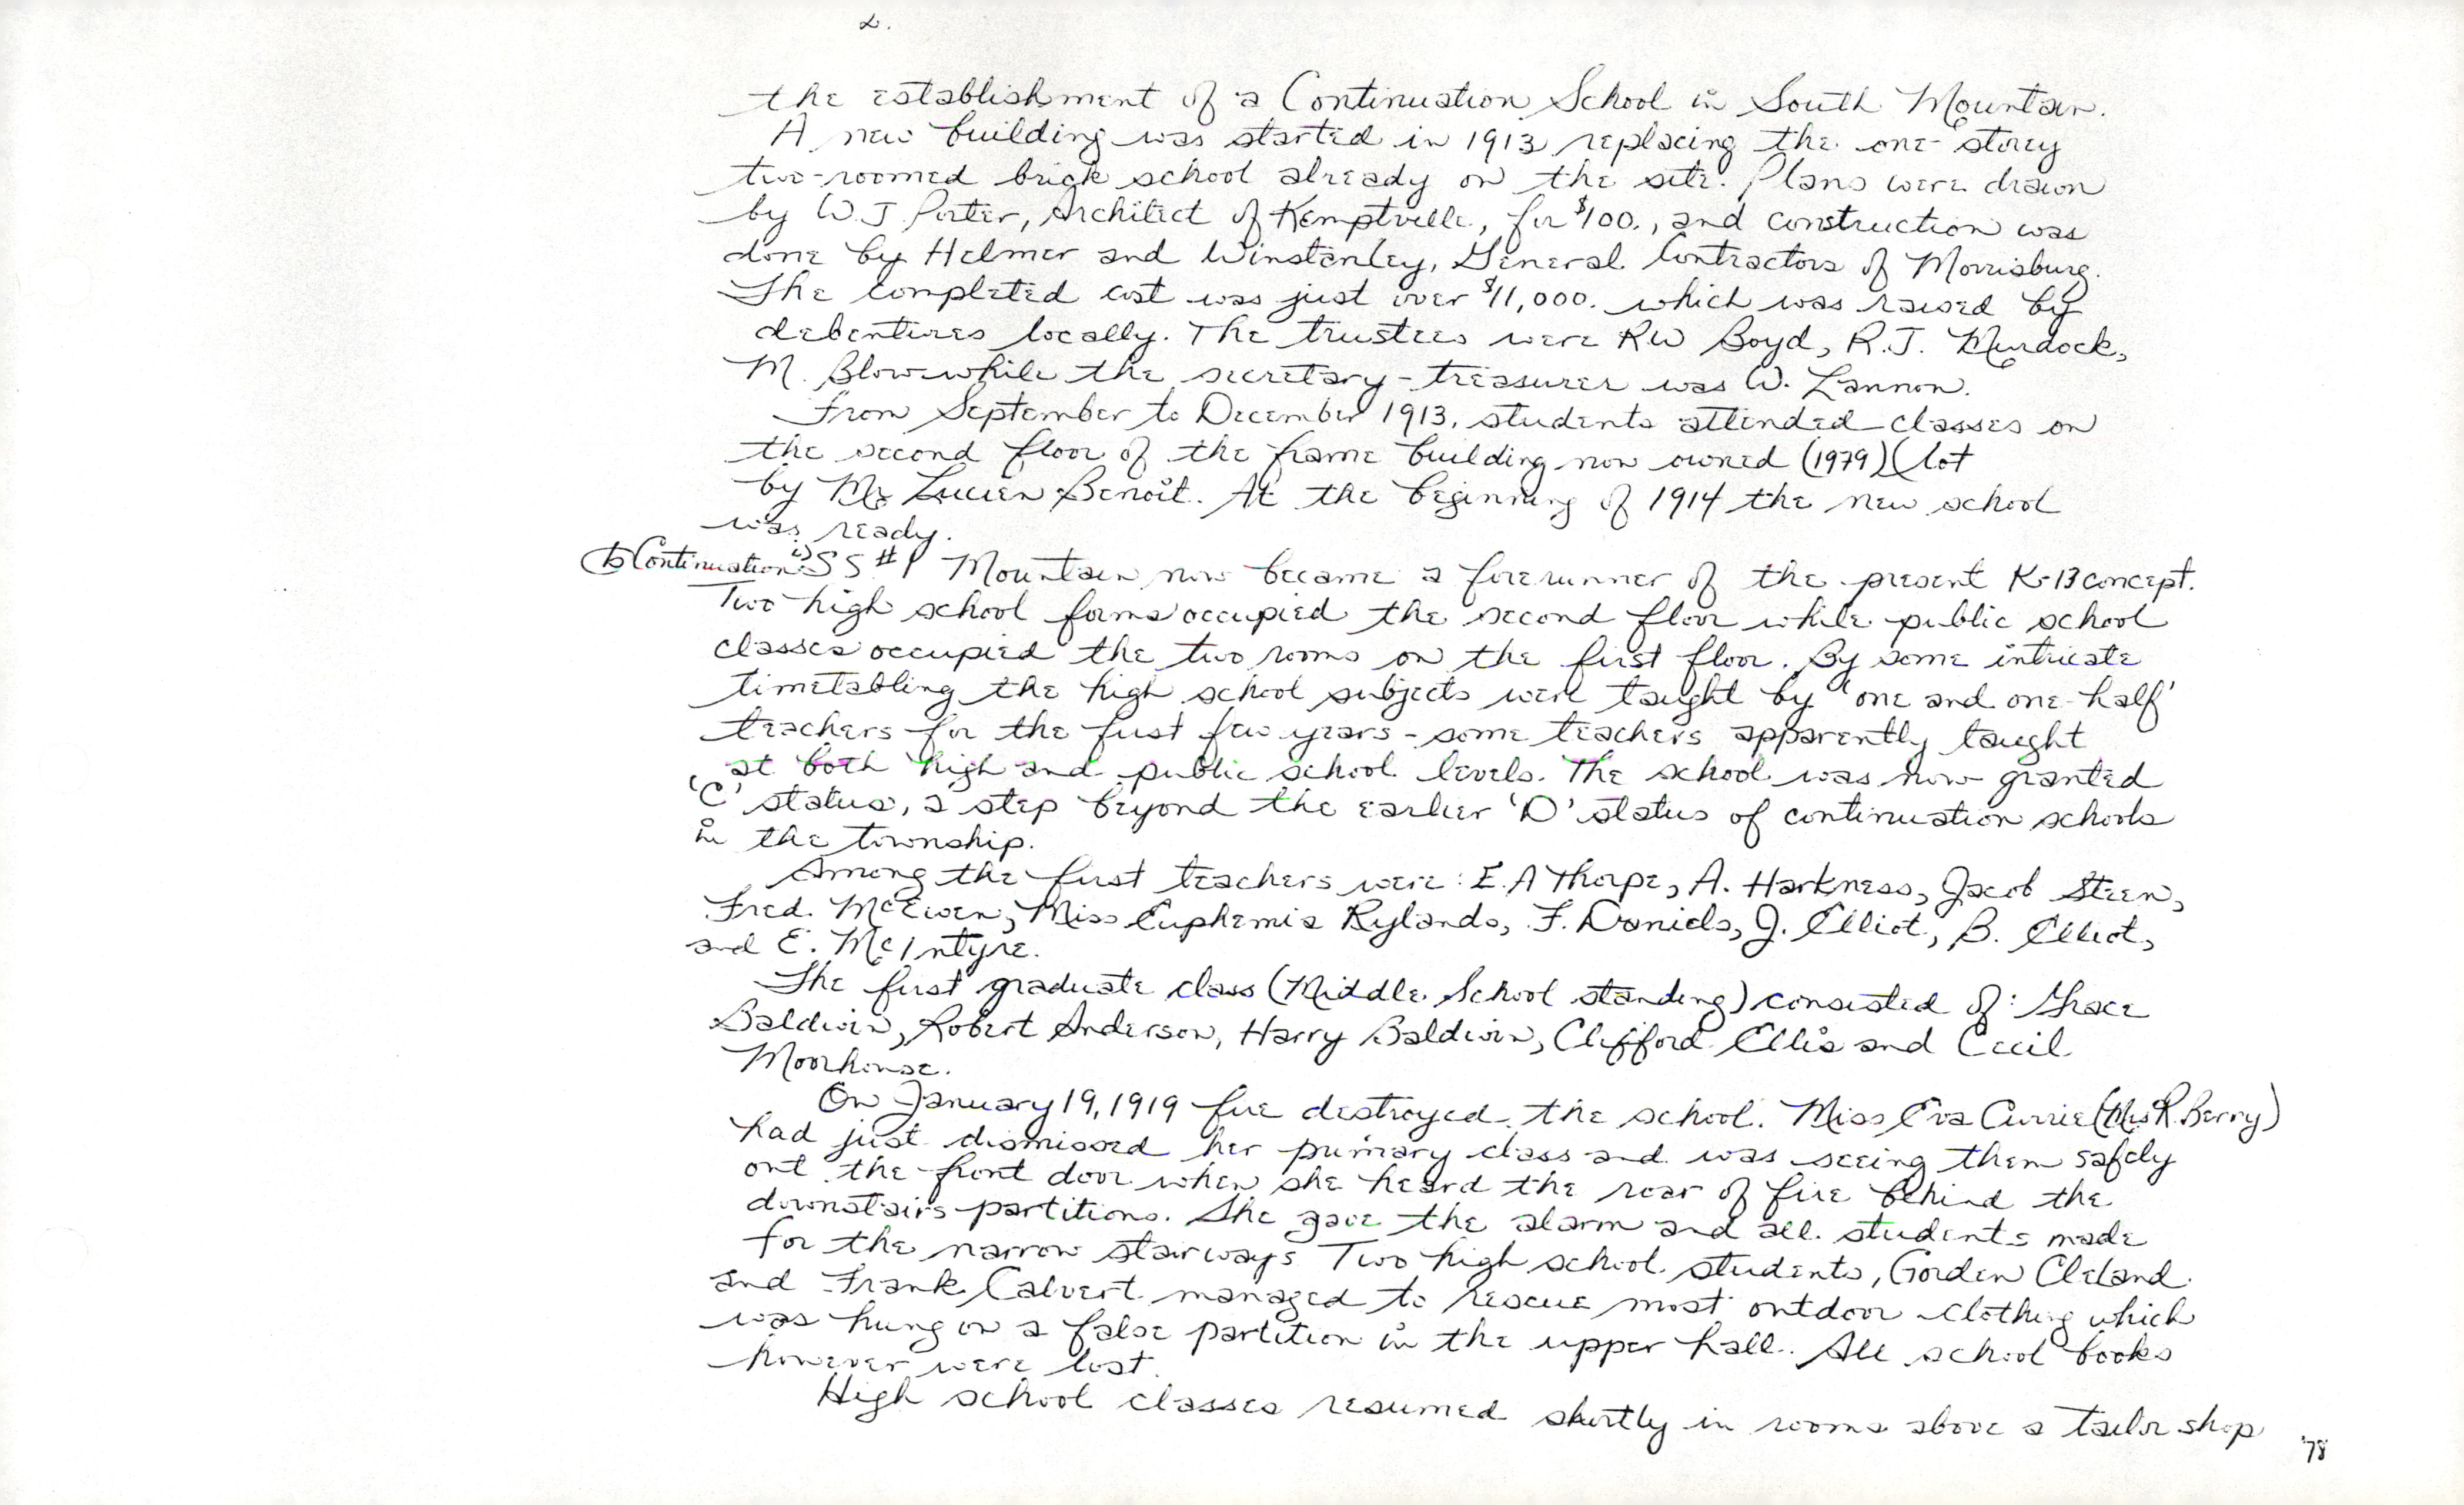 2.
the establishment of a Continuation School in South Mountain.
A new building was started in 1913 replacing the one-storey
two-roomed brick school already on the site. Plans were drawn
by W.J. Porter, Architect of Kemptville, for $100., and construction was
done by Helmer and Winstanley, General Contractors of Morrisburg.
The completed cost was just over $11,000. which was raised by
debentures locally. The trustees were RW Boyd, R.J. Murdock,
M. Blow while the secretary-treasurer was W. Lannon.
From September to December 1913, students attended classes on
the second floor of the frame building now owned (1979) (lot
by Mr Lucien Benoit. At the beginning of 1914 the new school
was ready.
b Continuation i) SS #1 Mountain now became a forerunner of the present K-13 concept.
Two high school forms occupied the second floor while public school
classes occupied the two rooms on the first floor. By some intricate
timetabling the high school subjects were taught by 'one and one-half'
teachers for the first few years - some teachers apparently taught
at both high and public school levels. The school was now granted
'C' status, a step beyond the earlier 'D' status of continuation schools
in the township.
Among the first teachers were: E.A Thorpe, A. Harkness, Jacob Steen,
Fred. McEwen, Miss Euphemia Rylands, F. Daniels, J. Elliot, B. Elliot,
and E. McIntyre.
The first graduate class (Middle School standing) consisted of: Grace
Baldwin, Robert Anderson, Harry Baldwin, Clifford Ellis and Cecil
Moorhouse.
On January 19, 1919 fire destroyed the school. Miss Eva Currie (Mrs R. Berry)
had just dismissed her primary class and was seeing them safely
out the front door when she heard the roar of fire behind the
downstairs partitions. She gave the alarm and all students made
for the narrow stairways. Two high school students, Gorden Cleland
and Frank Calvert managed to rescue most outdoor clothing which
was hung on a false partition in the upper hall. All school books
however were lost.
High school classes resumed shortly in rooms above a tailor shop
'78